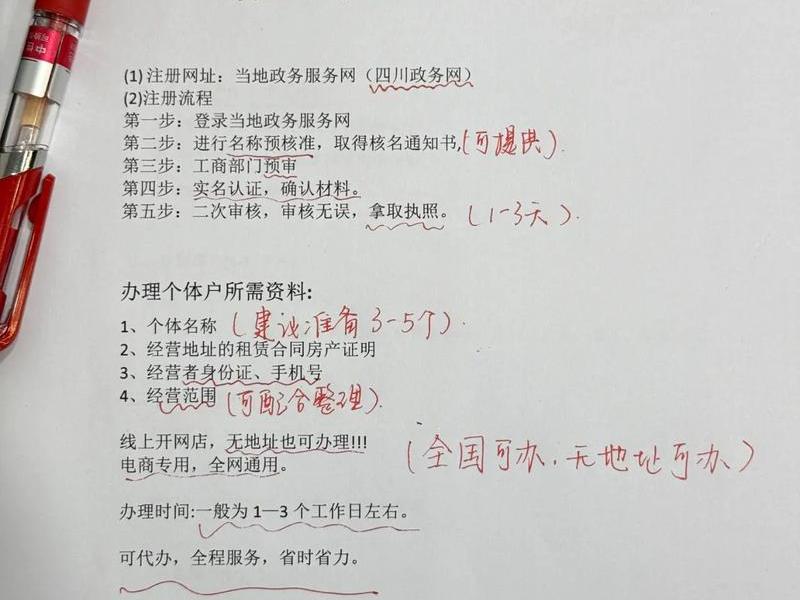 (1) 注册网址：当地政务服务网（四川政务网）
(2)注册流程
第一步：登录当地政务服务网
第二步：进行名称预核准，取得核名通知书,(可提供).
第三步：工商部门预审
第四步：实名认证，确认材料。
第五步：二次审核，审核无误，拿取执照。(1-3天).
办理个体户所需资料:
1、个体名称 (建议准备3-5个).
2、经营地址的租赁合同房产证明
3、经营者身份证、手机号
4、经营范围 (可配合整理).
线上开网店，无地址也可办理!!!
电商专用，全网通用。
(全国可办.无地址可办)
办理时间:一般为1—3个工作日左右。
可代办，全程服务，省时省力。